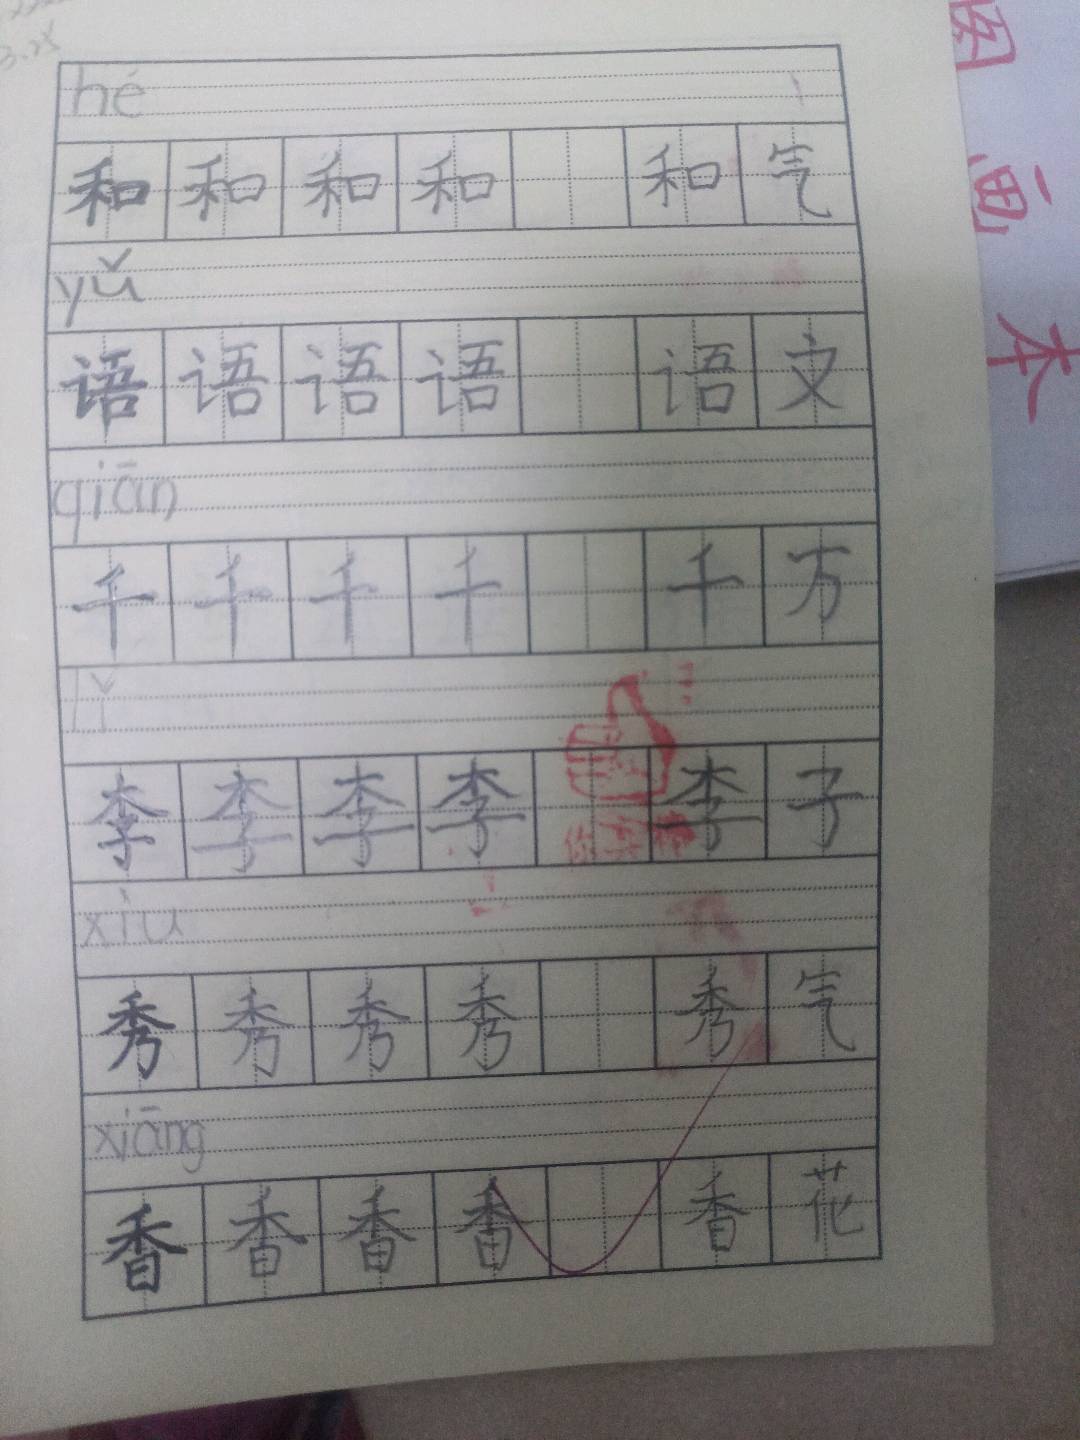 hé
和和和和 和气
yǔ
语语语语 语文
qiān
千千千千 千万
lǐ
李李李李 李子
xiù
秀秀秀秀 秀气
xiāng
香香香香 香花
图画本